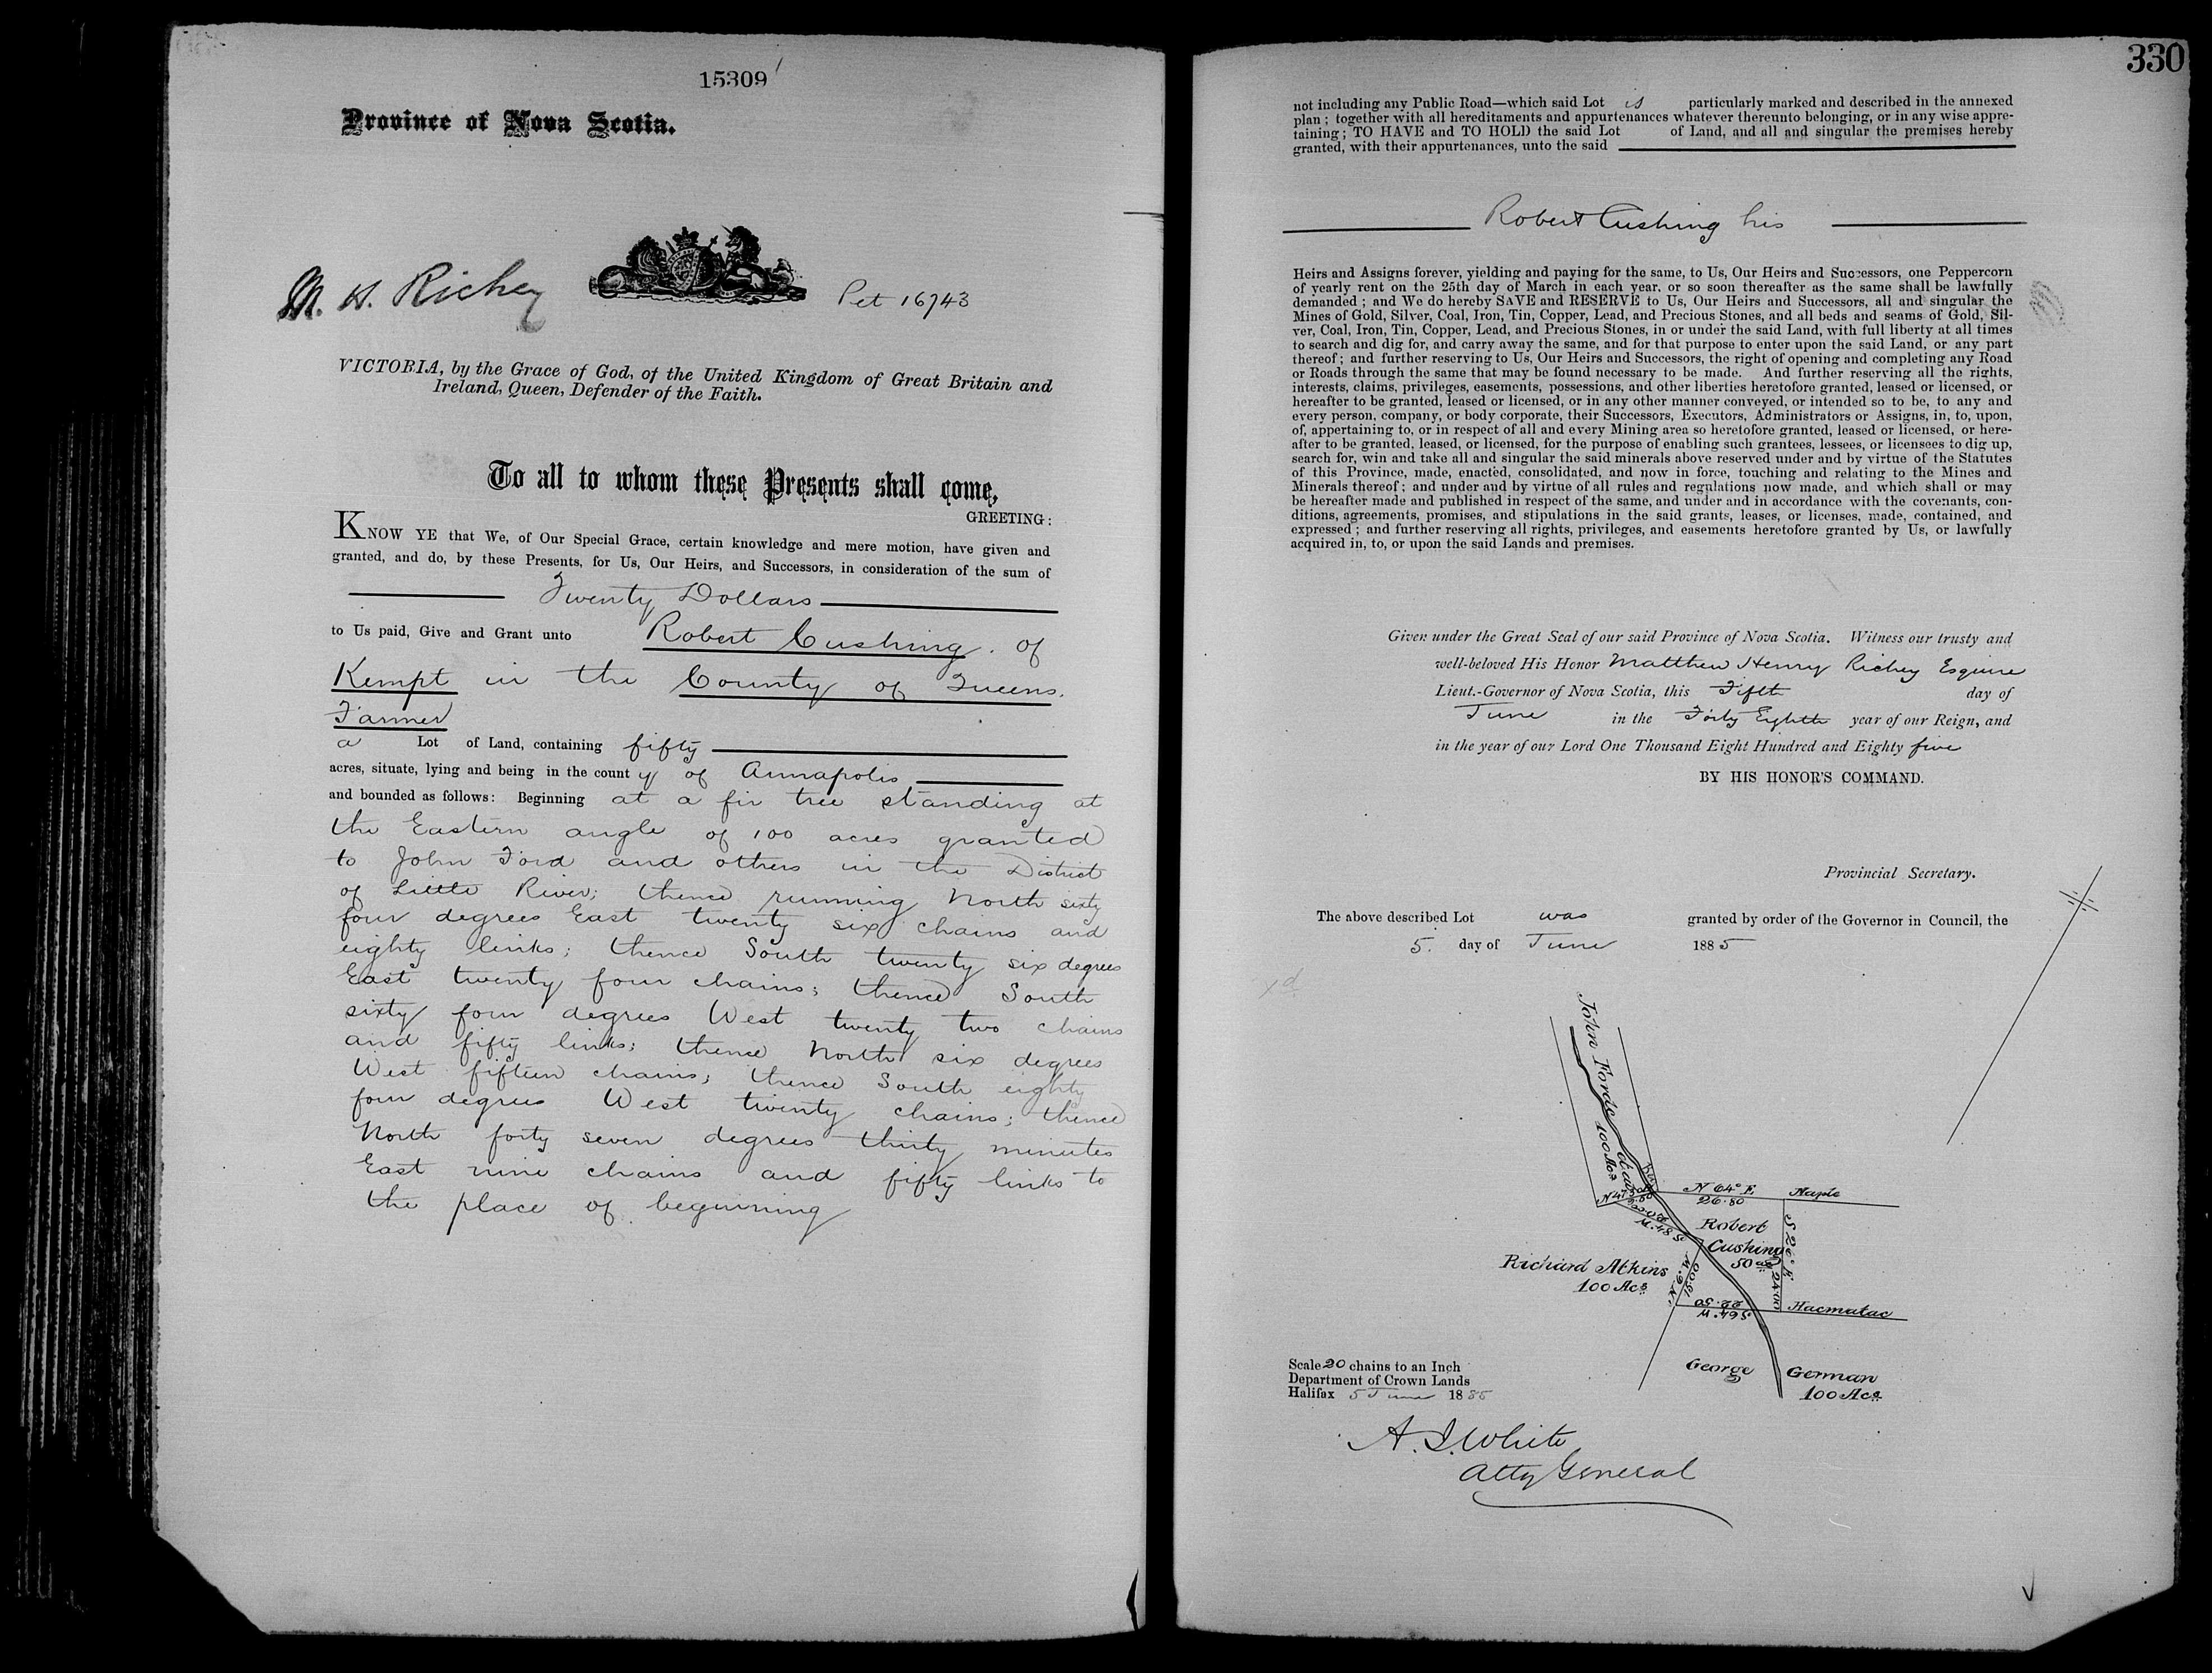 15309
Province of Nova Scotia.
M. H. Richey
Pet 16743
VICTORIA, by the Grace of God, of the United Kingdom of Great Britain and
Ireland, Queen, Defender of the Faith.
To all to whom these Presents shall come,
GREETING:
KNOW YE that We, of Our Special Grace, certain knowledge and mere motion, have given and
granted, and do, by these Presents, for Us, Our Heirs, and Successors, in consideration of the sum of
Twenty Dollars
to Us paid, Give and Grant unto Robert Cushing. of
Kempt in the County of Queens.
Farmer
a Lot of Land, containing fifty
acres, situate, lying and being in the county of Annapolis
and bounded as follows: Beginning at a fir tree standing at
the Eastern angle of 100 acres granted
to John Ford and others in the District
of Little River; thence running North sixty
four degrees East twenty six chains and
eighty links; thence South twenty six degrees
East twenty four chains; thence South
sixty four degrees West twenty two chains
and fifty links; thence North six degrees
West fifteen chains; thence South eighty
four degrees West twenty chains; thence
North forty seven degrees thirty minutes
East nine chains and fifty links to
the place of beginning
330
not including any Public Road—which said Lot is particularly marked and described in the annexed
plan; together with all hereditaments and appurtenances whatever thereunto belonging, or in any wise appre-
taining; TO HAVE and TO HOLD the said Lot of Land, and all and singular the premises hereby
granted, with their appurtenances, unto the said
Robert Cushing his
Heirs and Assigns forever, yielding and paying for the same, to Us, Our Heirs and Successors, one Peppercorn
of yearly rent on the 25th day of March in each year, or so soon thereafter as the same shall be lawfully
demanded; and We do hereby SAVE and RESERVE to Us, Our Heirs and Successors, all and singular the
Mines of Gold, Silver, Coal, Iron, Tin, Copper, Lead, and Precious Stones, and all beds and seams of Gold, Sil-
ver, Coal, Iron, Tin, Copper, Lead, and Precious Stones, in or under the said Land, with full liberty at all times
to search and dig for, and carry away the same, and for that purpose to enter upon the said Land, or any part
thereof; and further reserving to Us, Our Heirs and Successors, the right of opening and completing any Road
or Roads through the same that may be found necessary to be made. And further reserving all the rights,
interests, claims, privileges, easements, possessions, and other liberties heretofore granted, leased or licensed, or
hereafter to be granted, leased or licensed, or in any other manner conveyed, or intended so to be, to any and
every person, company, or body corporate, their Successors, Executors, Administrators or Assigns, in, to, upon,
of, appertaining to, or in respect of all and every Mining area so heretofore granted, leased or licensed, or here-
after to be granted, leased, or licensed, for the purpose of enabling such grantees, lessees, or licensees to dig up,
search for, win and take all and singular the said minerals above reserved under and by virtue of the Statutes
of this Province, made, enacted, consolidated, and now in force, touching and relating to the Mines and
Minerals thereof; and under and by virtue of all rules and regulations now made, and which shall or may
be hereafter made and published in respect of the same, and under and in accordance with the covenants, con-
ditions, agreements, promises, and stipulations in the said grants, leases, or licenses, made, contained, and
expressed; and further reserving all rights, privileges, and easements heretofore granted by Us, or lawfully
acquired in, to, or upon the said Lands and premises.
Given under the Great Seal of our said Province of Nova Scotia. Witness our trusty and
well-beloved His Honor Matthew Henry Richey Esquire
Lieut.-Governor of Nova Scotia, this Fifth day of
June in the Forty Eighth year of our Reign, and
in the year of our Lord One Thousand Eight Hundred and Eighty five
BY HIS HONOR'S COMMAND.
Provincial Secretary.
The above described Lot was granted by order of the Governor in Council, the
5. day of June 1885
John Ford
100 Acs
N 64° E
26.80
Maple
Robert
Cushing
50 acs
S 26° E
24.00
Richard Atkins
100 Acs
N. 6° W.
15.00
22.50
S 64° W
S 84° W
20.00
Hacmatac
George German
100 Acs
Scale 20 chains to an Inch
Department of Crown Lands
Halifax 5 June 1885
A. J. White
Atty General